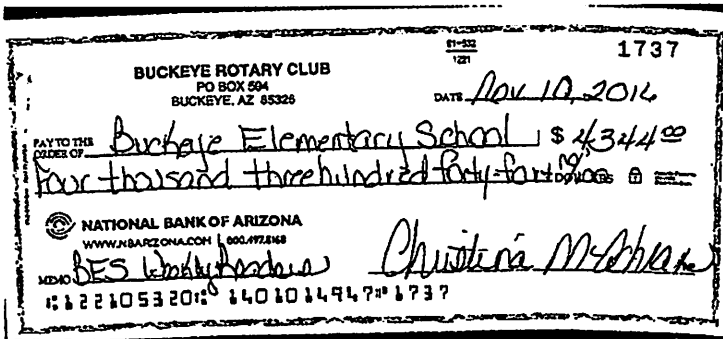 91-532
1221
1737
BUCKEYE ROTARY CLUB
PO BOX 594
BUCKEYE, AZ 85326
DATE Nov 10, 2016
PAY TO THE ORDER OF Buckeye Elementary School $ 4344 00
Four thousand three hundred forty-four DOLLARS
NATIONAL BANK OF ARIZONA
WWW.NBARIZONA.COM
MEMO BES Weekly Readers Christina
⑆122105320⑆ 1401014947⑈1737